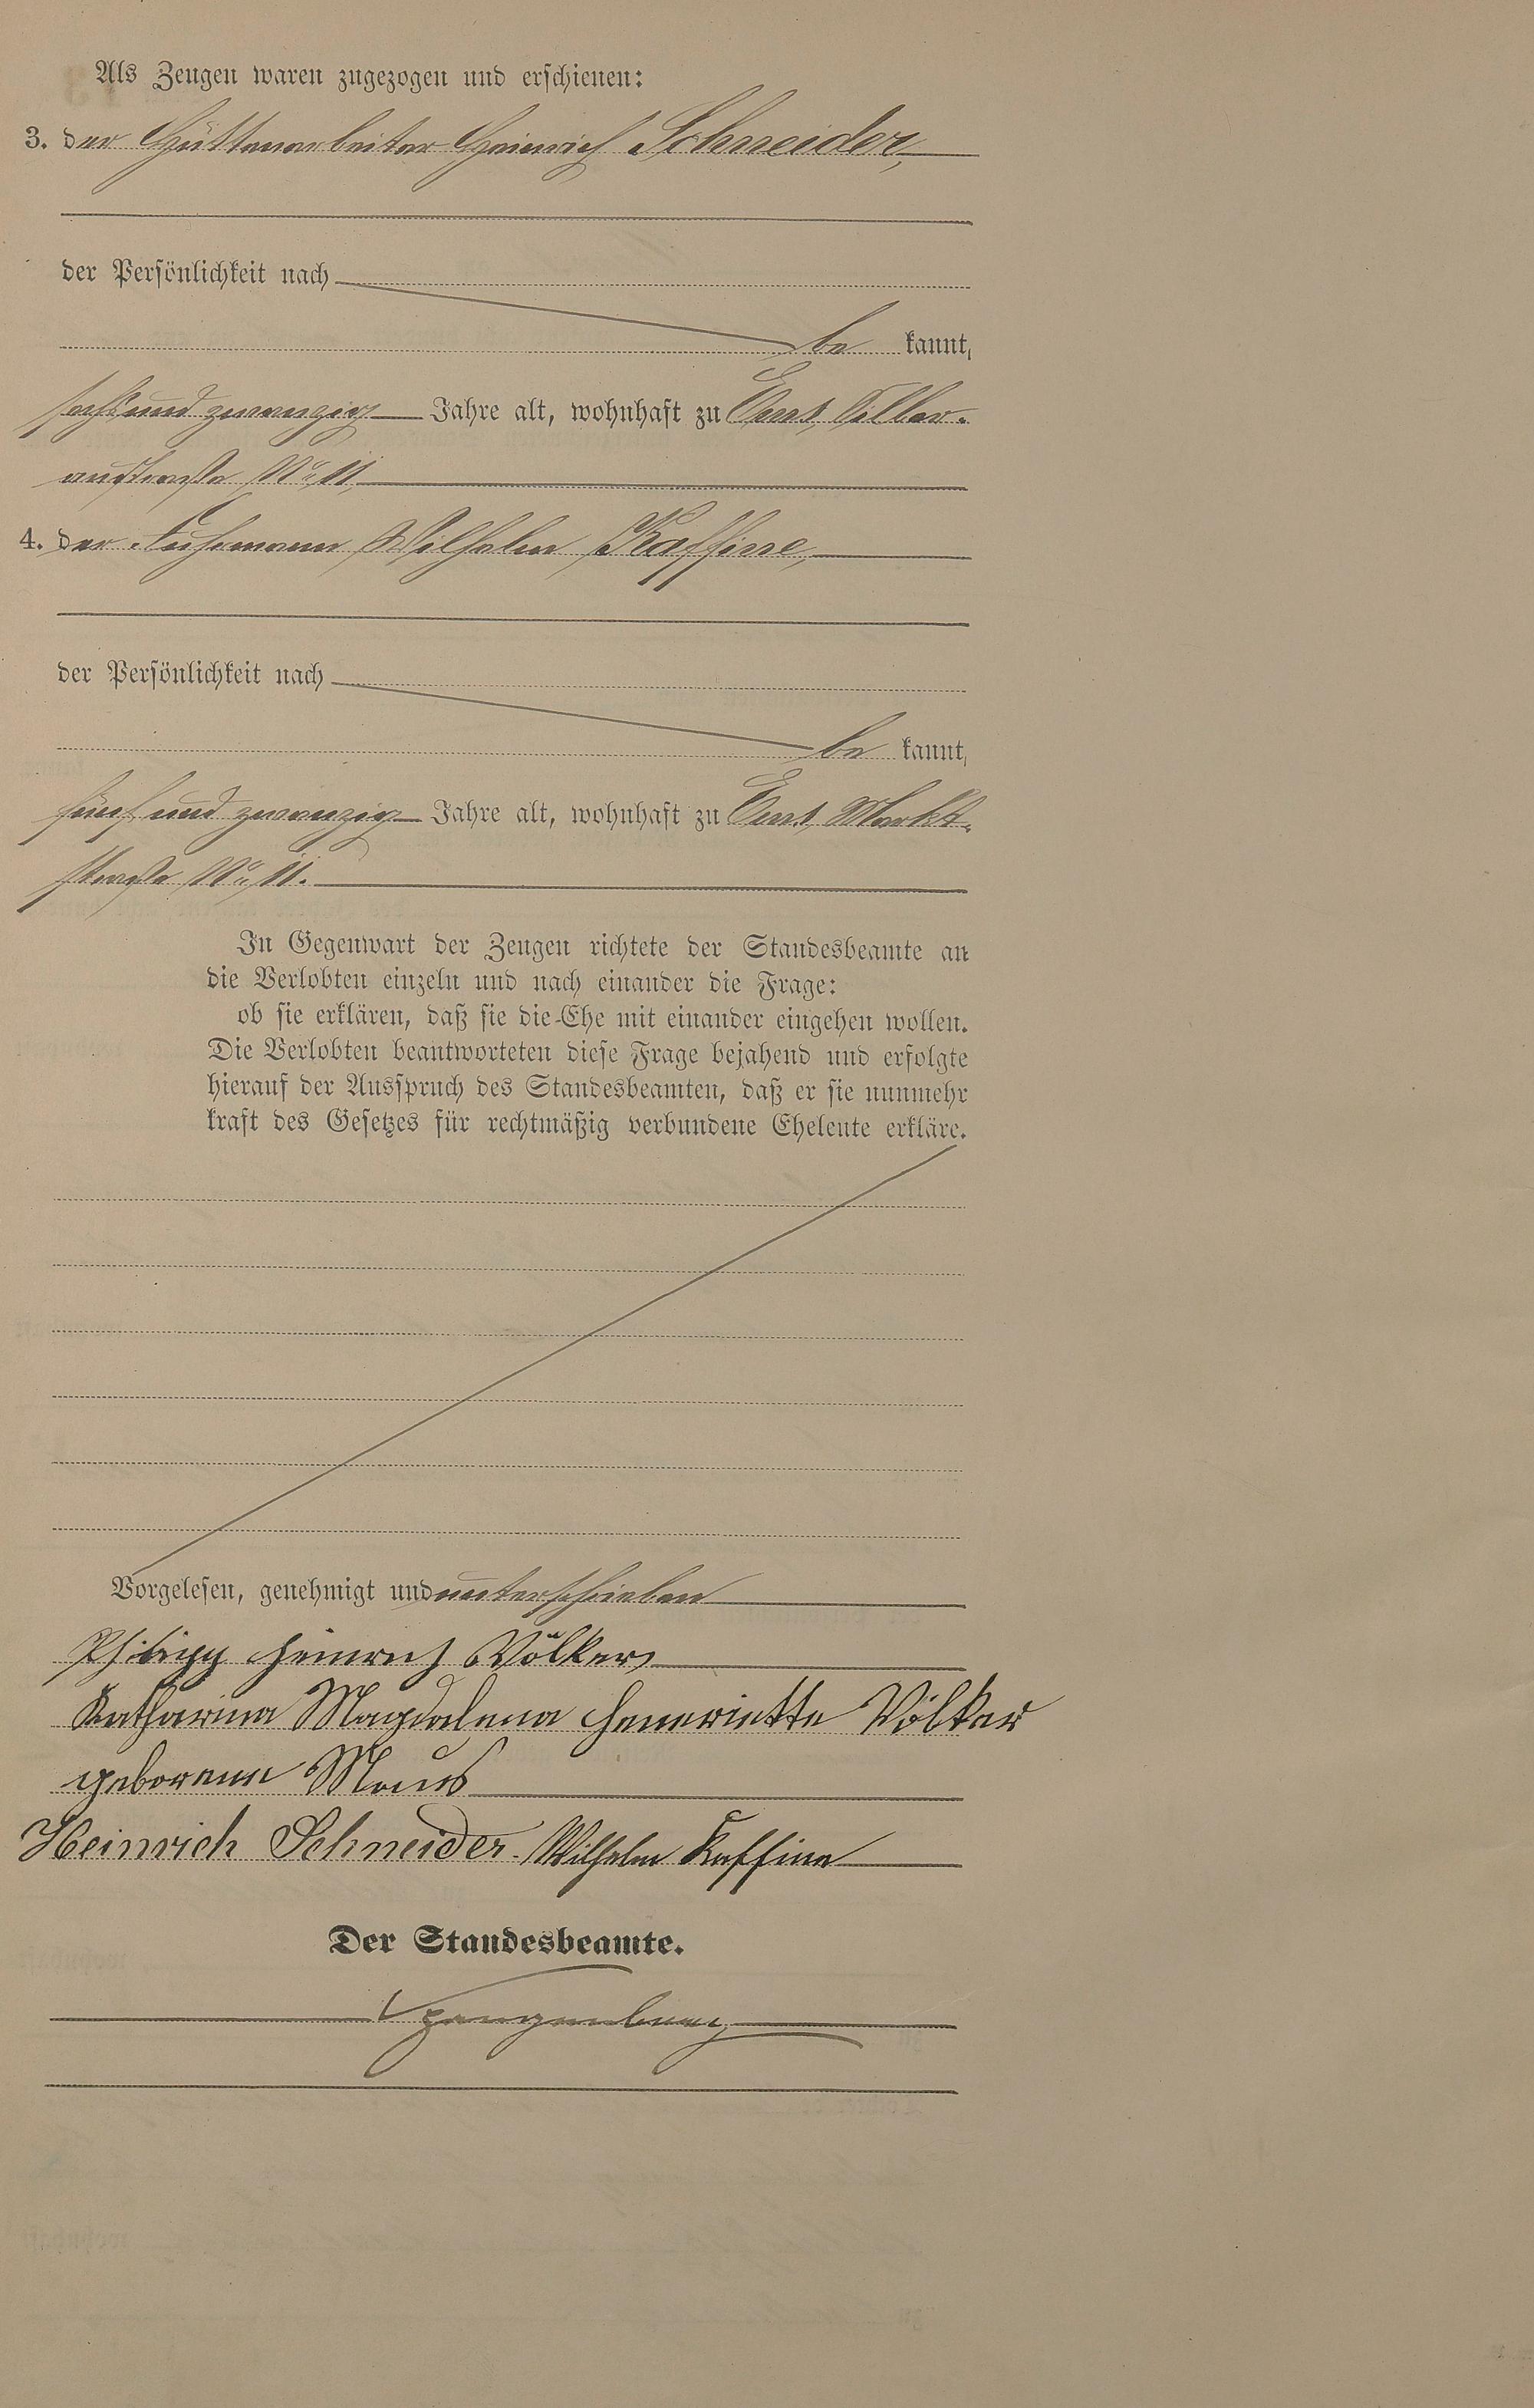 Als Zeugen waren zugezogen und erschienen:
3. der Hüttenarbeiter Heinrich Schneider,
der Persönlichkeit nach
be kannt,
sechsundzwanzig Jahre alt, wohnhaft zu Ems,
No 11,
4. der Fuhrmann Wilhelm Kaffine,
der Persönlichkeit nach
be kannt,
fünfundzwanzig Jahre alt, wohnhaft zu Ems, Markt-
straße No 11.
In Gegenwart der Zeugen richtete der Standesbeamte an
die Verlobten einzeln und nach einander die Frage:
ob sie erklären, daß sie die Ehe mit einander eingehen wollen.
Die Verlobten beantworteten diese Frage bejahend und erfolgte
hierauf der Ausspruch des Standesbeamten, daß er sie nunmehr
kraft des Gesetzes für rechtmäßig verbundene Eheleute erkläre.
Vorgelesen, genehmigt und unterschrieben
Philipp Heinrich Völker
Katharina Magdalena Heneriette Völker
geborene Maus
Heinrich Schneider. Wilhelm Kaffine
Der Standesbeamte.
Spangenberg